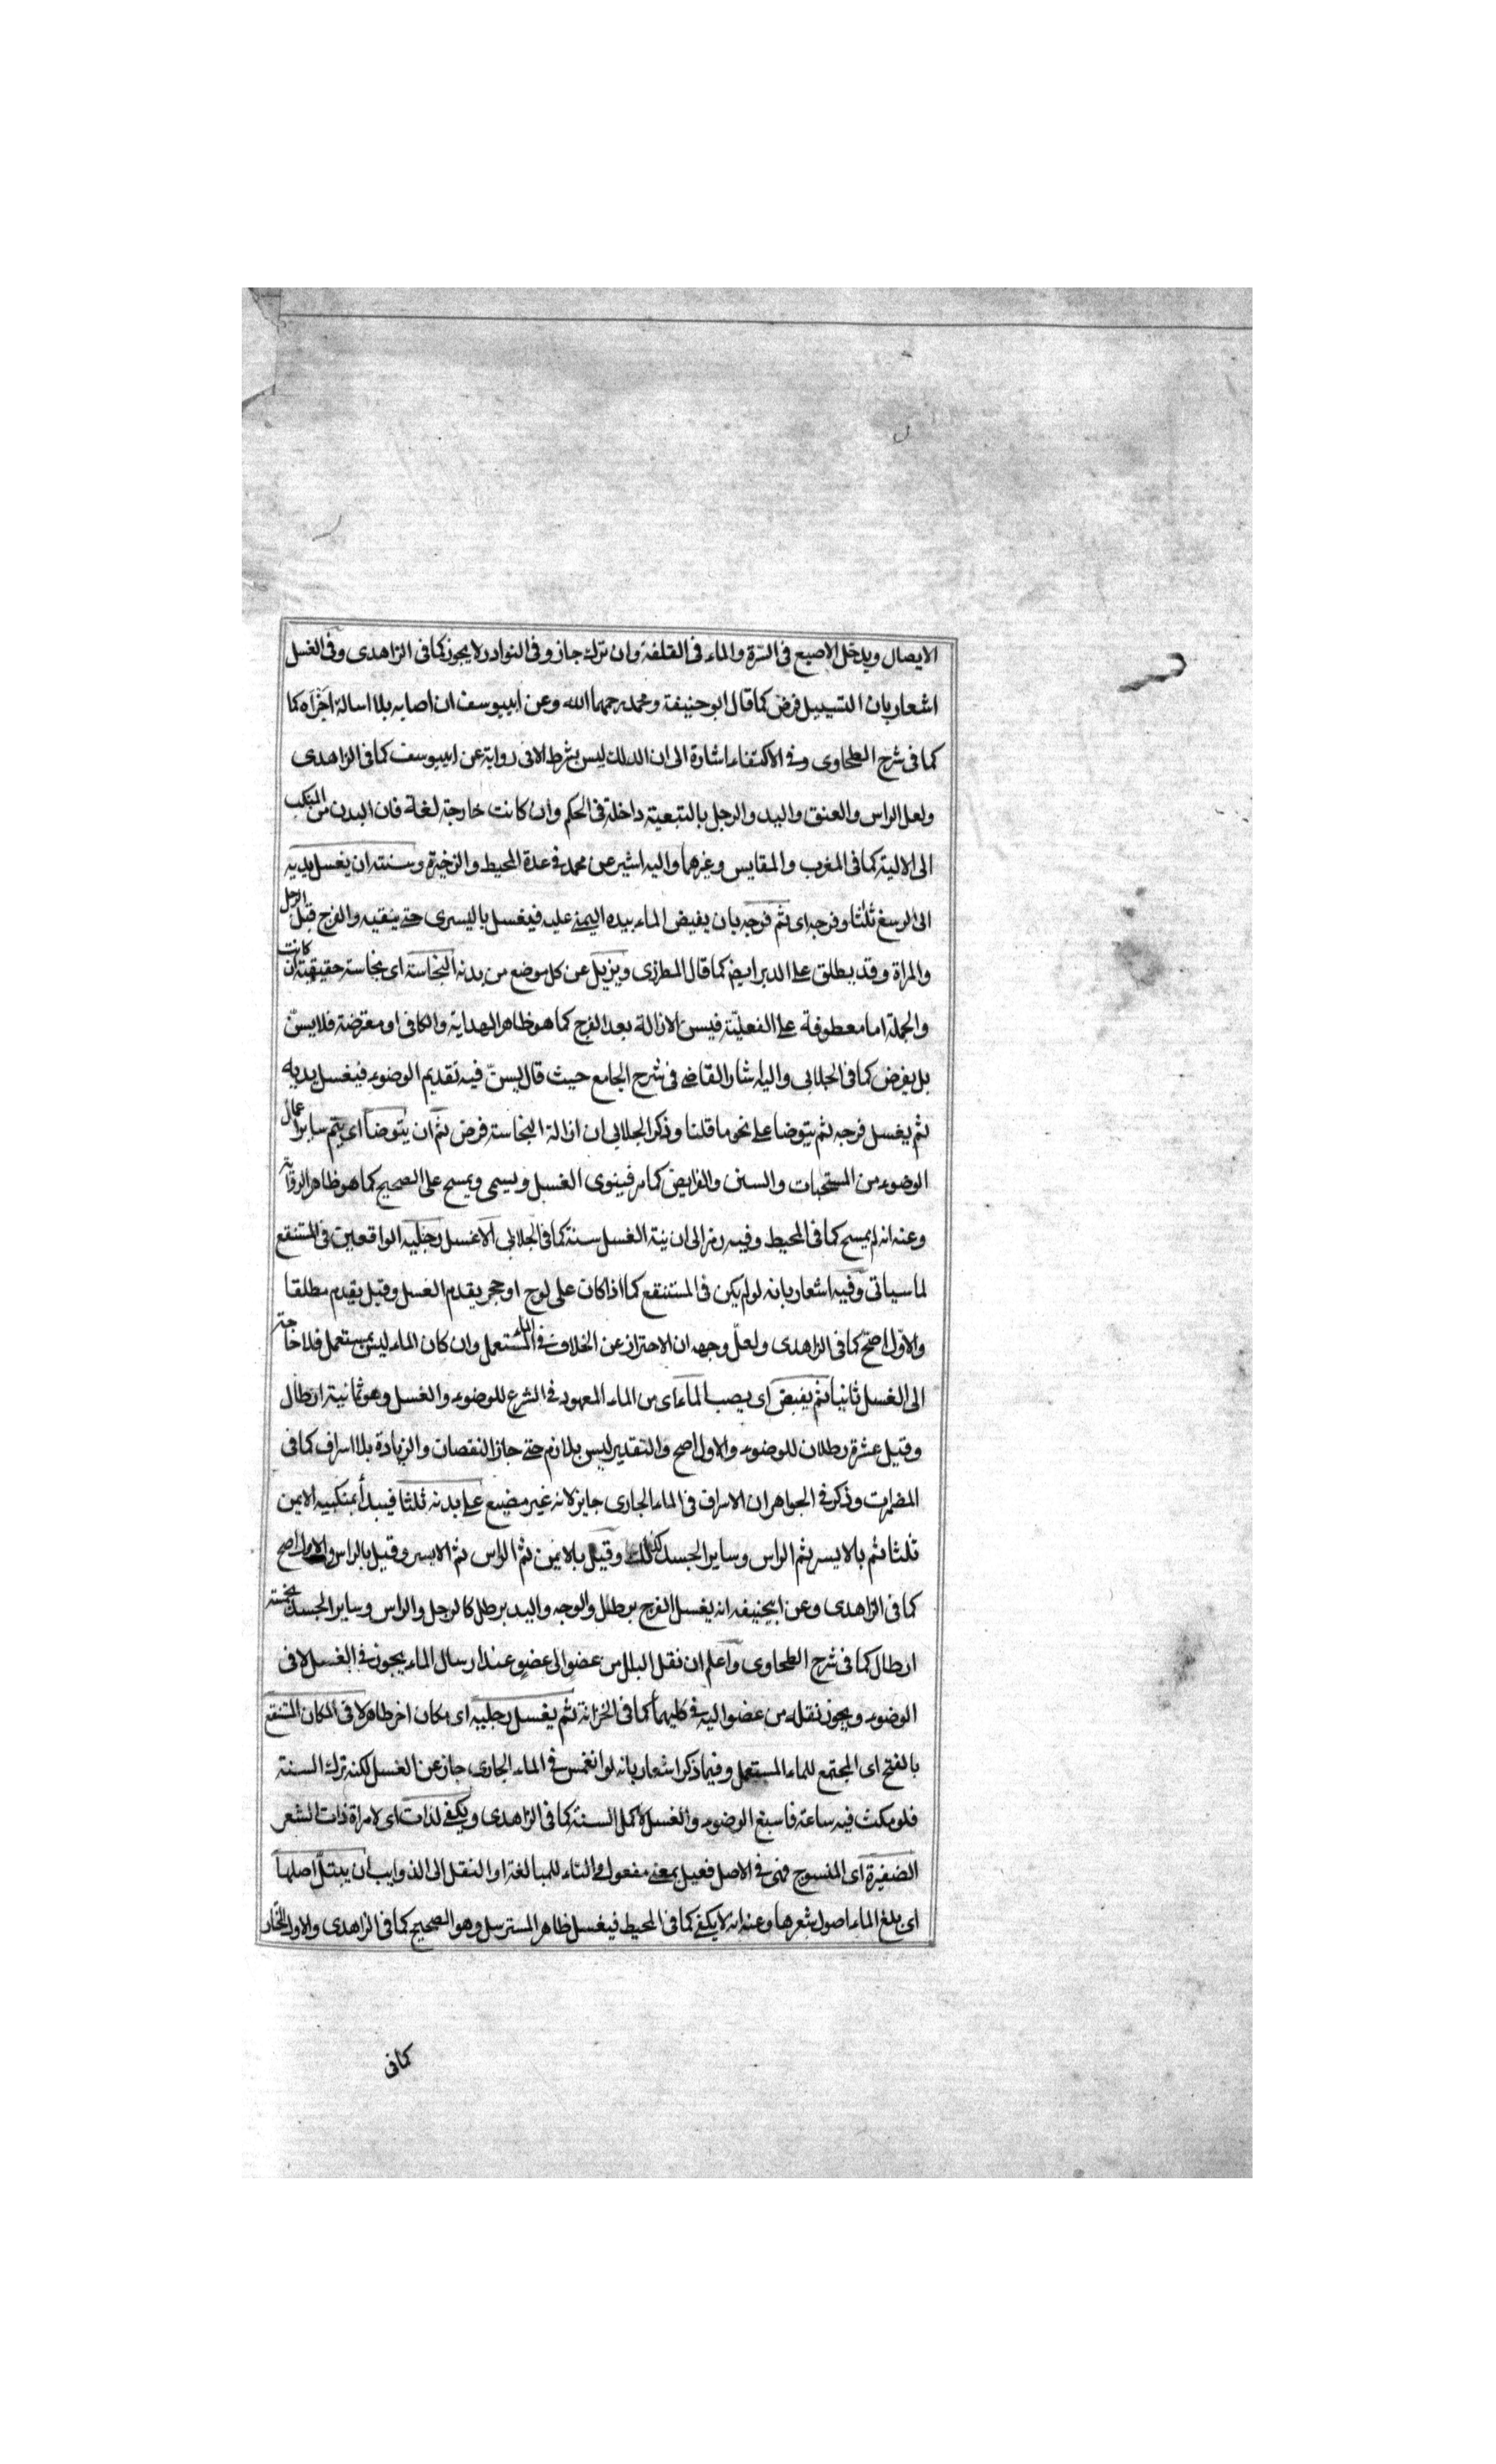 الايصال ويدخل الاصبع فى السّرة والماء فى القلفة وان ترك جاز وفى النوادر لا يجوز كما فى الزاهدى وفى الغسل
اشعار بان التسييل فرض كما قال ابو حنيفة ومحمد رحمهما الله وعن ابييوسف ان اصابه بلا اسالة اجزاه كما
كما فى شرح الطحاوى وفى الاكتفاء اشارة الى ان الدلك ليس بشرط الا فى رواية عن ابييوسف كما فى الزاهدى
ولعل الراس والعنق واليد والرجل بالتبعية داخلة فى الحكم وان كانت خارجة لغة فان البدن من المنكب
الى الالية كما فى المغرب والمقايس وغيرهما واليه اشير عن محمد فى عدة المحيط والذخيرة وسنته ان يغسل يديه
الى الرسغ ثلثا وفرجه اى ثم فرجه بان يفيض الماء بيده اليمنى عليه فيغسل باليسرى حتى ينقيه والفرج قبل الرجل
والمراة وقد يطلق على الدبر ايض كما قال المطرزى ويزيل عن كل موضع من بدنه النجاسة اى نجاسة حقيقية ان كانت
والجملة اما معطوفة على الفعليّة فيسن الازالة بعد الفرج كما هو ظاهر الهداية والكافى او معترضة فلا يسنّ
بل يفرض كما فى الجلابى واليه اشار القاضى فى شرح الجامع حيث قال يسنّ فيه تقديم الوضوء فيغسل يديه
ثم يغسل فرجه ثم يتوضا على نحو ما قلنا وذكر الجلابى ان ازالة النجاسة فرض ثم ان يتوضا اى يتم ساير اعمال
الوضوء من المستحبات والسنن والفرايض كما مر فينوى الغسل ويسمى ويمسح على الصحيح كما هو ظاهر الرواية
وعنه انه لم يمسح كما فى المحيط وفيه رمز الى ان نية الغسل سنة كما فى الجلابى الا غسل رجليه الواقعين فى المستنقع
لما سياتى وفيه اشعار بانه لو لم يكن فى المستنقع كما اذا كان على لوح او حجر يقدم الغسل وقيل يقدم مطلقا
والاوّل اصحّ كما فى الزاهدى ولعلّ وجهه ان الاحتراز عن الخلاف فى الماء المستعمل وان كان الماء ليس بمستعمل فلا حاجة
الى الغسل ثانيا ثم يفيض اى يصب الماء اى من الماء المعهود فى الشرع للوضوء والغسل وهو ثمانية ارطال
وقيل عشرة رطلان للوضوء والاول اصح والتقدير ليس بلازم حتى جاز النقصان والزيادة بلا اسراف كما فى
المضمرات وذكر فى الجواهر ان الاسراف فى الماء الجارى جايز لانه غير مضيع على بدنه ثلثا فيبدأ بمنكبيه الايمن
ثلثا ثم بالايسر ثم الراس وساير الجسد كذلك وقيل بالايمن ثم الراس ثم الايسر وقيل بالراس والاول اصح
كما فى الزاهدى وعن ابيحنيفه انه يغسل الفرج برطل والوجه واليد برطل كالرجل والراس وساير الجسد بخمسة
ارطال كما فى شرح الطحاوى واعلم ان نقل البلل من عضو الى عضو عند ارسال الماء يجوز فى الغسل لا فى
الوضوء ويجوز نقله من عضو اليه فى كليهما كما فى الخزانة ثم يغسل رجليه اى مكان اخر طاهر لا فى المكان المستنقع
بالفتح اى المجتمع للماء المستعمل وفيما ذكر اشعار بانه لو انغمس فى الماء الجارى جاز عن الغسل لكنه ترك السنة
فلو مكث فيه ساعة فاسبغ الوضوء والغسل لاكمل السنة كما فى الزاهدى ويكفى لذات اى لامراة ذات الشعر
الضفيرة اى المنسوج فهى فى الاصل فعيل بمعنى مفعول والتاء للمبالغة او النقل الى الذوايب ان يبتلّ اصلها
اى بلغ الماء اصول شعرها وعنه انه لا يكفى كما فى المحيط فيغسل ظاهر المسترسل وهو الصحيح كما فى الزاهدى والاول المختار
كما فى